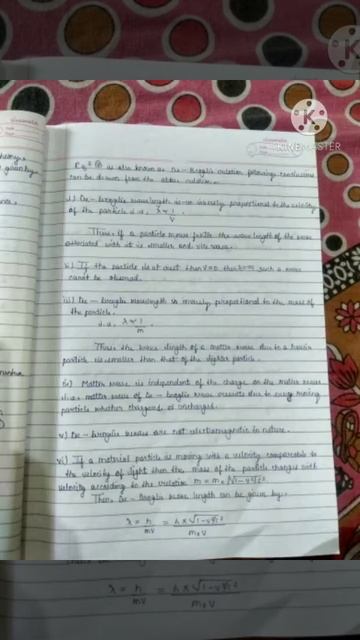 KINEMASTER
Eqⁿ is also known as De-Broglie relation following conclusions
can be drawn from the above relation.
i) De-broglie wavelength is inversely proportional to the velocity
of the particle i.e. λ ∝ 1/v
Thus, if a particle moves faster the wave length of the wave
associated with it is smaller and vice versa.
ii) If the particle is at rest then v=0 then λ=∞ such a wave
cannot be observed.
iii) De-broglie wavelength is inversly proportional to the mass of
the particle.
i.e. λ ∝ 1/m
Thus the wave length of a matter wave due to a heavier
particle is smaller than that of the lighter particle.
iv) Matter wave is independent of the charge on the matter
i.e. matter wave of De-broglie wave due to every moving
particle whether charged or uncharged.
v) De-broglie waves are not electromagnetic in nature.
vi) If a material particle is moving with a velocity comparable to
the velocity of light then the mass of the particle changes with
velocity according to the relation m = m₀/√1-v²/c²
Then, De-broglie wave length can be given by:
λ = h/mv = h×√1-v²/c² / m₀v
λ = h/mv = h×√1-v²/c² / m₀v